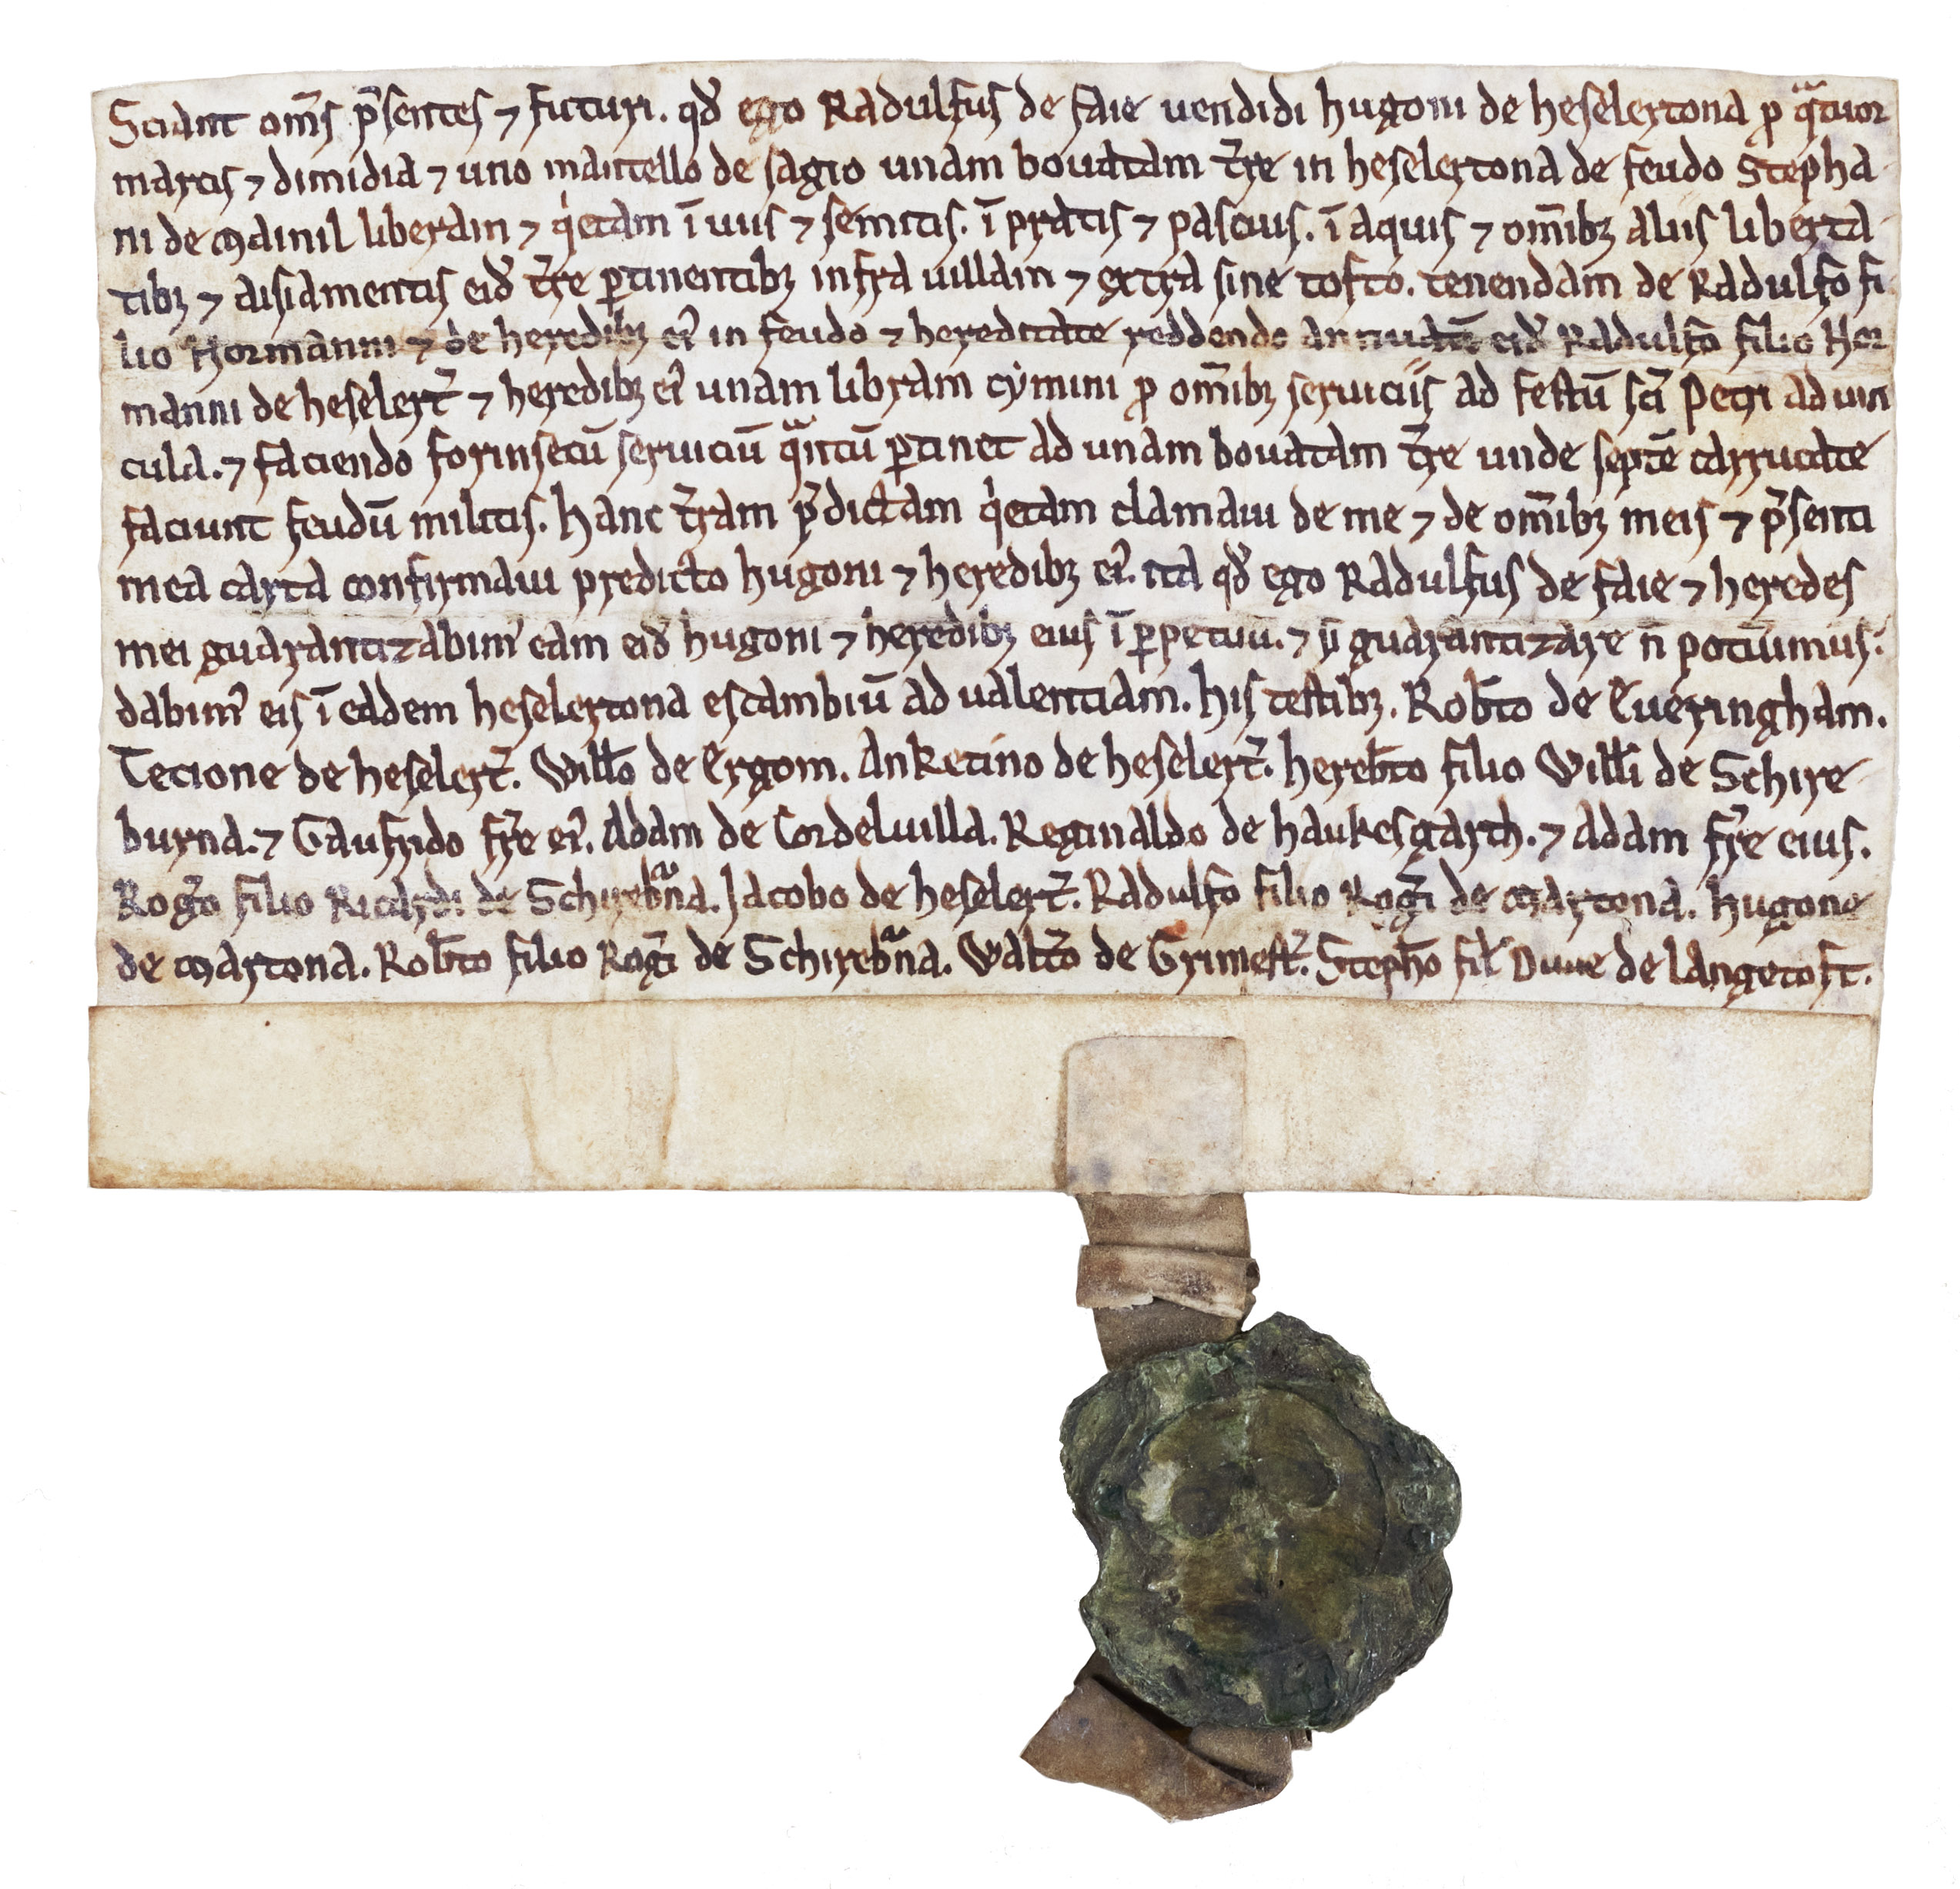 Sciant om̄s p̄sentes ⁊ futuri. qđ ego Radulfus de faie uendidi hugoni de heselertona ꝓ qᵃtuor
marcis ⁊ dimidia ⁊ uno mantello de sagio unam bouatam t̄re in heselertona de feudo Stepha-
ni de Mainil liberam ⁊ qⁱetam ī uiis ⁊ semitis. ī pratis ⁊ pascuis. ī aquis ⁊ om̄ibꝫ aliis liberta-
tibꝫ ⁊ aisiamentis eiđ t̄re ꝑtinentibꝫ infra uillam ⁊ extra sine tofto. tenendam de Radulfo fi-
lio Normanni ⁊ de heredibꝫ ei᾽ in feudo ⁊ hereditate reddendo annuatī eiđ Radulfo filio Nor
manni de heselert᾽ ⁊ heredibꝫ ei᾽ unam libram cymini ꝓ om̄ibꝫ seruiciis ad festū sc̄i Petri ad uin
cula. ⁊ faciendo forinsecū seruiciū qᵃntū ꝑtinet ad unam bouatam t̄re unde septē carrucate
faciunt feudū militis. hanc t̄ram p̄dictam qⁱetam clamaui de me ⁊ de om̄ibꝫ meis ⁊ p̄senti
mea carta confirmaui predicto hugoni ⁊ heredibꝫ ei᾽. ita qđ ego Radulfus de faie ⁊ heredes
mei guarantizabim᾽ eam eiđ hugoni ⁊ heredibꝫ eius ī ꝑpetuū. ⁊ sⁱ guarantizare n̄ potuimus.
dabim᾽ eis ī eadem heselertona escambiū ad ualentiam. his testibꝫ. Robt̄o de Eueringham.
Tecione de heselert᾽. Wiłło de Ergom. Anketino de heselert᾽. herebt̄o filio Wiłłi de Schire-
burna. ⁊ Gaufrido fr̄e ei᾽. Adam de Cordeluilla. Reginaldo de haukesgarth. ⁊ Adam fr̄e eius.
Rog᾽o filio Ricardi de Schirebᵃna. Jacobo de heselert᾽. Radulfo filio Rog᾽i de Martona. hugone
de Martona. Robt̄o filio Rog᾽i de Schirebᵃna. Walt᾽o de Grimest᾽. Steph̄o fił Duue de langetoft.